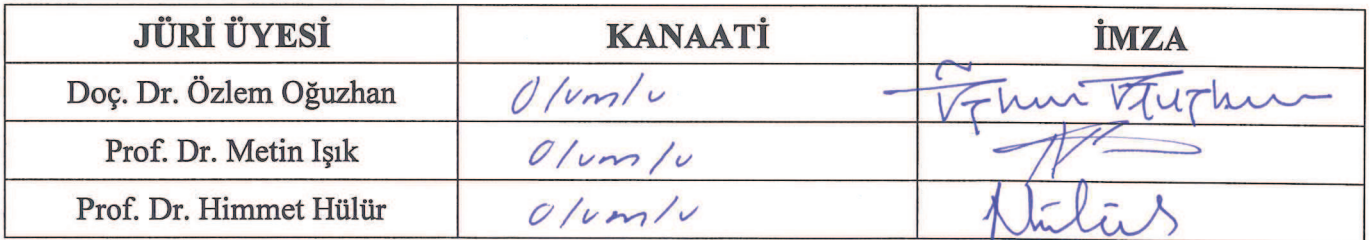 JÜRİ ÜYESİ KANAATİ İMZA
Doç. Dr. Özlem Oğuzhan Olumlu
Prof. Dr. Metin Işık Olumlu
Prof. Dr. Himmet Hülür Olumlu